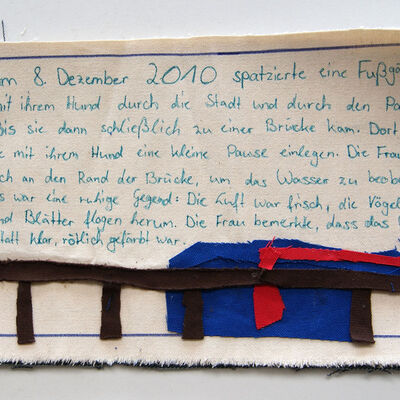 m 8. Dezember 2010 spatzierte eine Fußgä
mit ihrem Hund durch die Stadt und durch den Pa
bis sie dann schließlich zu einer Brücke kam. Dort
e mit ihrem Hund eine kleine Pause einlegen. Die Frau
ch an den Rand der Brücke, um das Wasser zu beob
s war eine ruhige Gegend: Die Luft war frisch, die Vögel
nd Blätter flogen herum. Die Frau bemerkte, dass das
statt klar, rötlich gefärbt war.